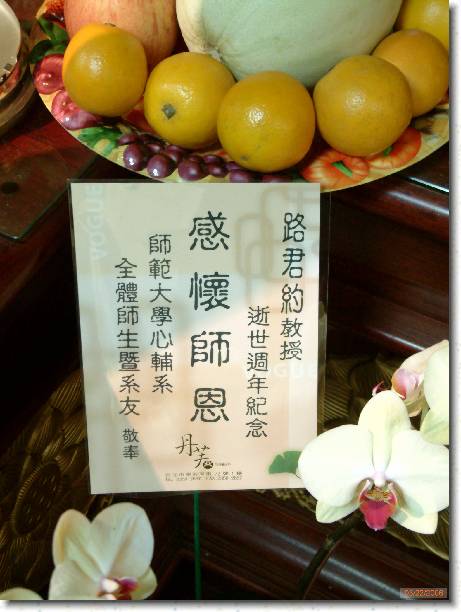 路君約教授
逝世週年紀念
感懷師恩
師範大學心輔系
全體師生暨系友 敬奉
丹芳
VOGUE
VOGUE
05/22/2006